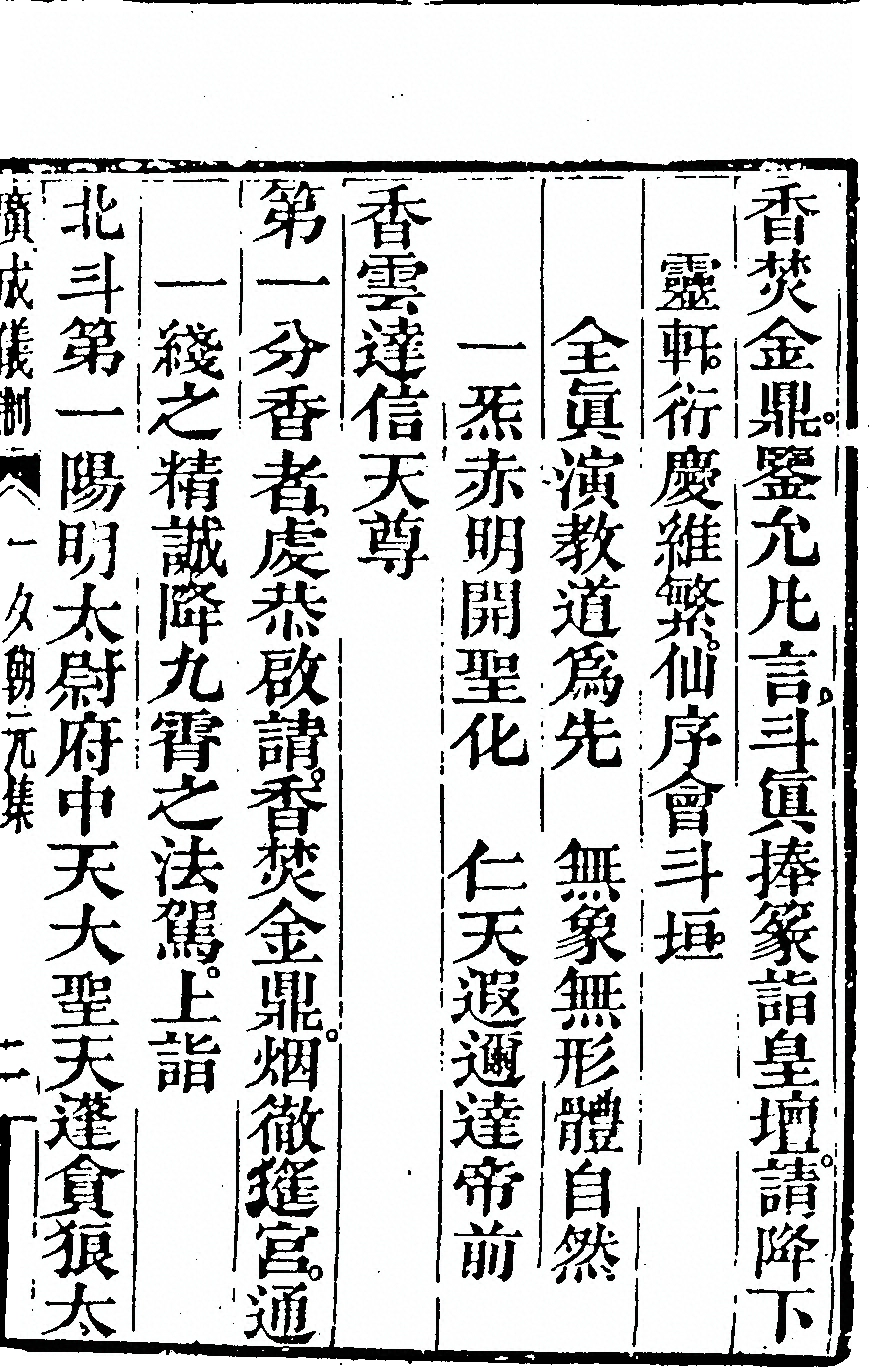 香焚金鼎。鑒允凡言。斗眞捧篆詣皇壇。請降下
靈軒。衍慶維繁。仙序會斗垣。
全眞演教道爲先　無象無形體自然
一炁赤明開聖化　仁天遐邇達帝前
香雲達信天尊
第一分香者。虔恭啟請。香焚金鼎。烟徹宮。通
一綫之精誠。降九霄之法駕。上詣
北斗第一陽明太尉府中天大聖天蓬貪狼太
廣成儀制　一夕朝元集　二